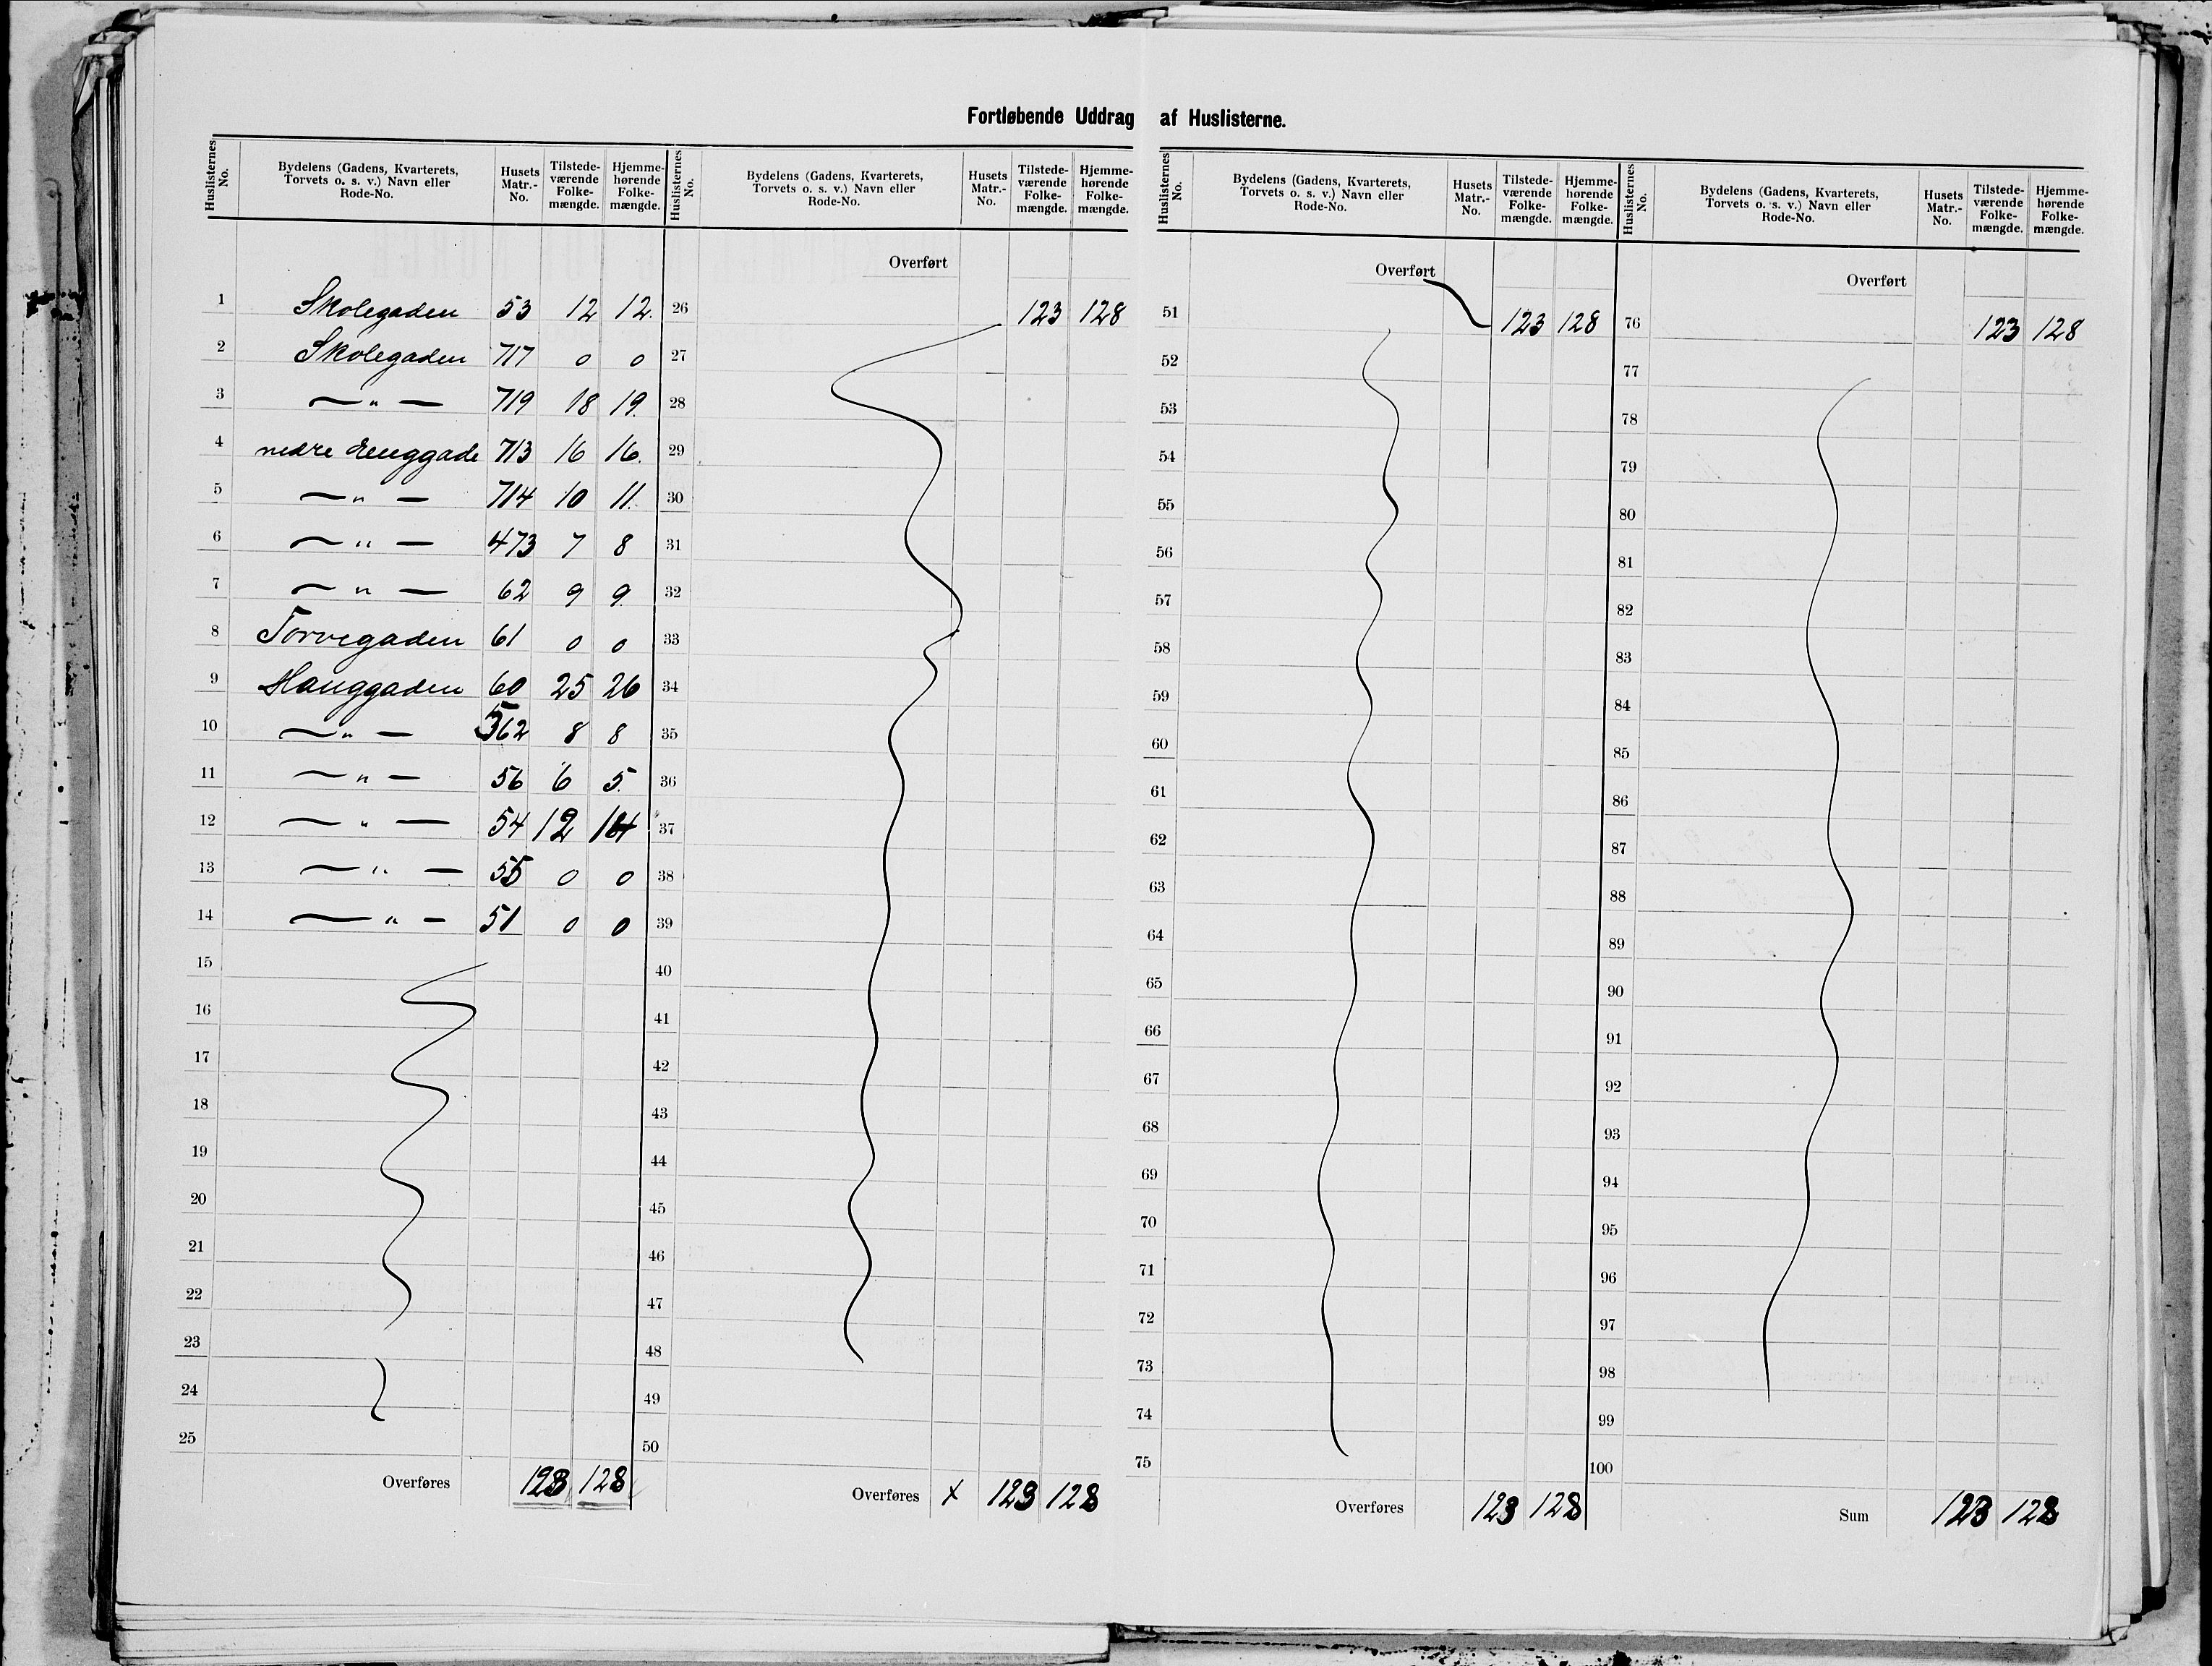 Fortløbende Uddrag af Huslisterne.
Huslisternes No. | Bydelens (Gadens, Kvarterets, Torvets o. s. v.) Navn eller Rode-No. | Husets Matr.-No. | Tilstede-værende Folke-mængde. | Hjemme-hørende Folke-mængde.
1 Skolegaden 53 12 12.
2 Skolegaden 717 0 0
3 —„— 719 18 19.
4 nedre Enggade 713 16 16.
5 —„— 714 10 11.
6 —„— 473 7 8
7 —„— 62 9 9.
8 Torvegaden 61 0 0
9 Hauggaden 60 25 26
10 —„— 562 8 8
11 —„— 56 6 5.
12 —„— 54 12 14
13 —„— 55 0 0
14 —„— 51 0 0
15
16
17
18
19
20
21
22
23
24
25
Overføres 123 128
Huslisternes No. | Bydelens (Gadens, Kvarterets, Torvets o. s. v.) Navn eller Rode-No. | Husets Matr.-No. | Tilstede-værende Folke-mængde. | Hjemme-hørende Folke-mængde.
Overført
26 123 128
27
28
29
30
31
32
33
34
35
36
37
38
39
40
41
42
43
44
45
46
47
48
49
50
Overføres x 123 128
Huslisternes No. | Bydelens (Gadens, Kvarterets, Torvets o. s. v.) Navn eller Rode-No. | Husets Matr.-No. | Tilstede-værende Folke-mængde. | Hjemme-hørende Folke-mængde.
Overført
51 123 128
52
53
54
55
56
57
58
59
60
61
62
63
64
65
66
67
68
69
70
71
72
73
74
75
Overføres 123 128
Huslisternes No. | Bydelens (Gadens, Kvarterets, Torvets o. s. v.) Navn eller Rode-No. | Husets Matr.-No. | Tilstede-værende Folke-mængde. | Hjemme-hørende Folke-mængde.
Overført
76 123 128
77
78
79
80
81
82
83
84
85
86
87
88
89
90
91
92
93
94
95
96
97
98
99
100
Sum 123 128